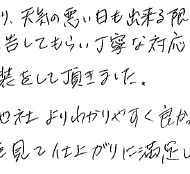 り、天気の悪い日も出来る限
告してもらい丁寧な対応
装をして頂きました。
他社よりわかりやすく良か
を見て仕上がりに満足し